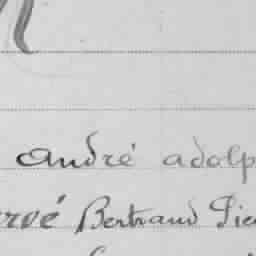 andré adolp
rvé Bertrand Pie